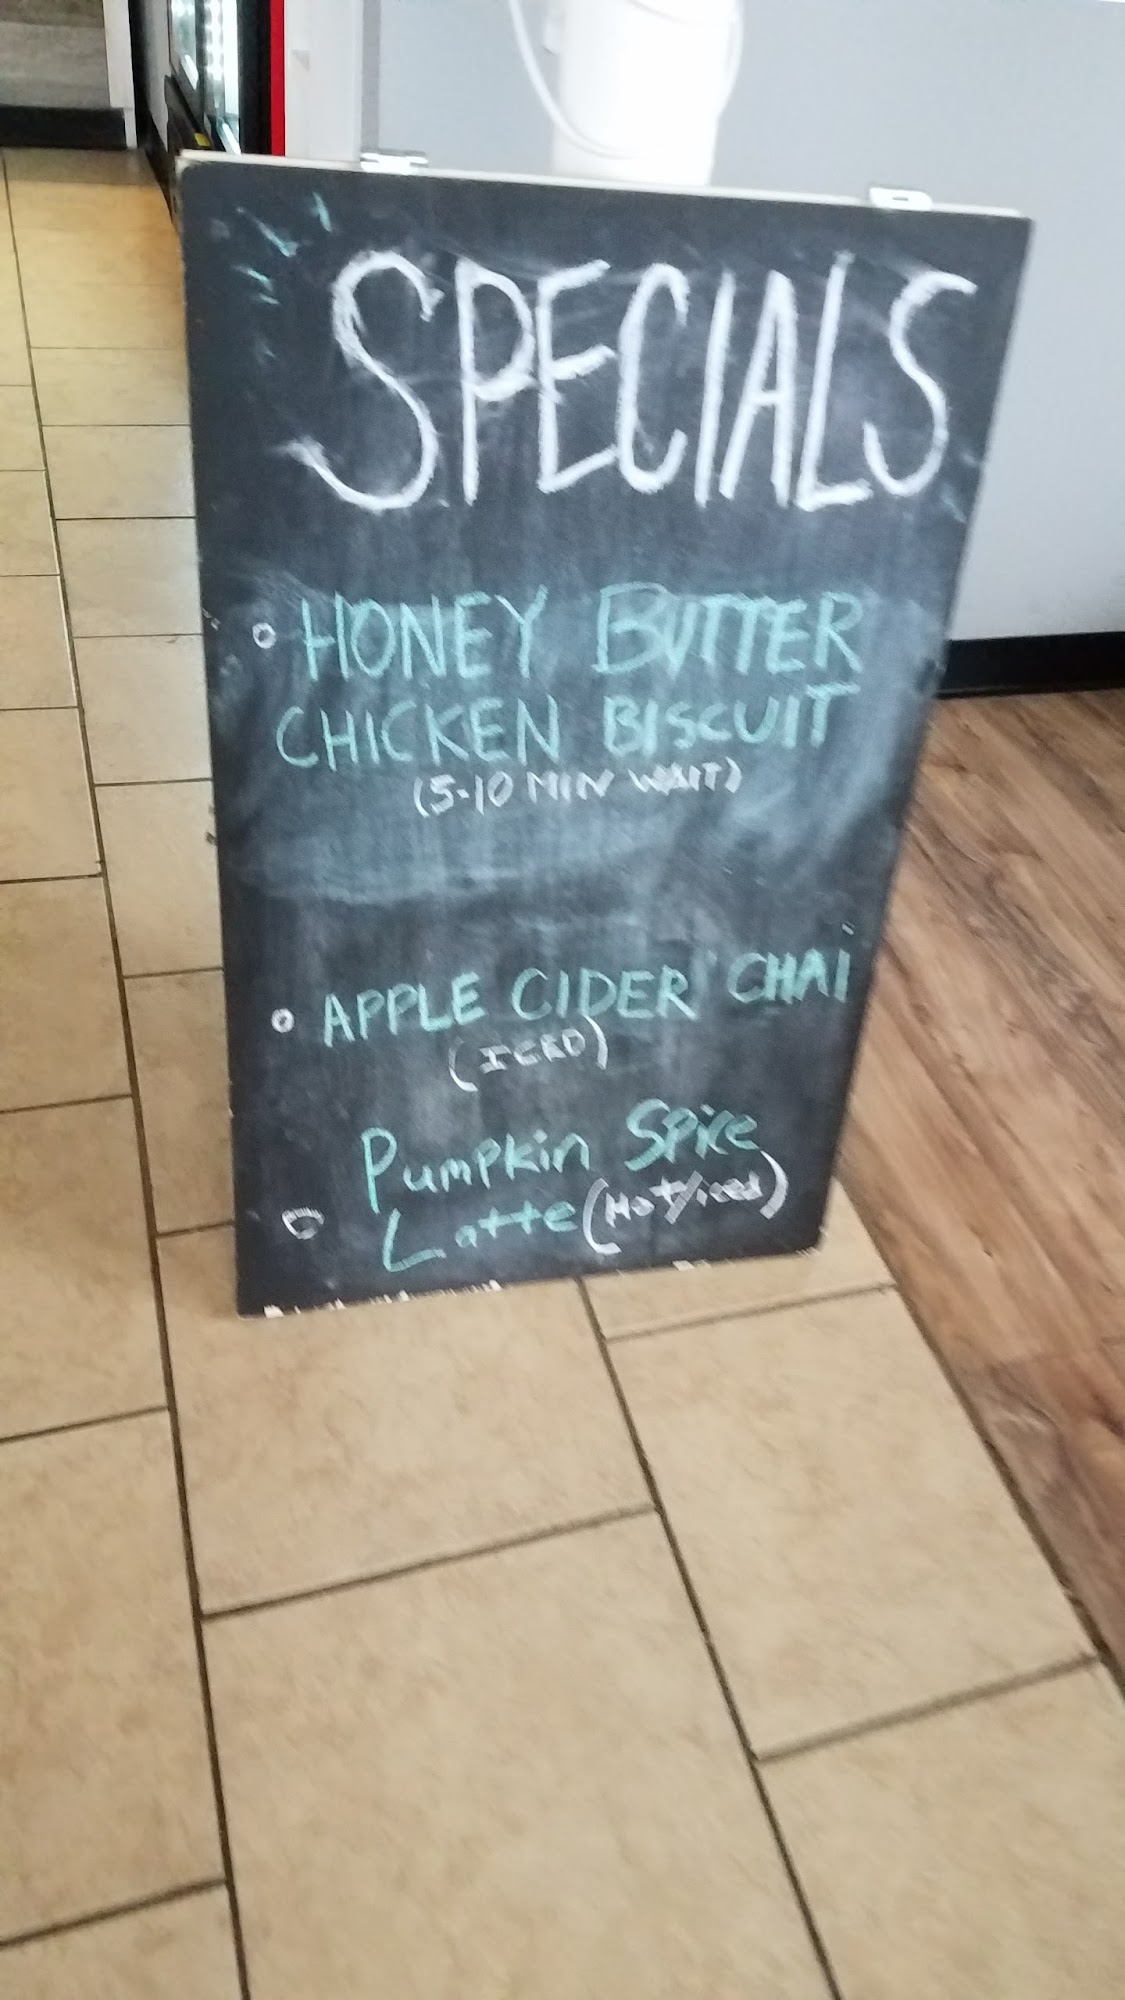 SPECIALS
HONEY BUTTER
CHICKEN BISCUIT
(5-10 MIN WAIT)
APPLE CIDER CHAI
(ICED)
Pumpkin Spice
Latte (Hot/iced)